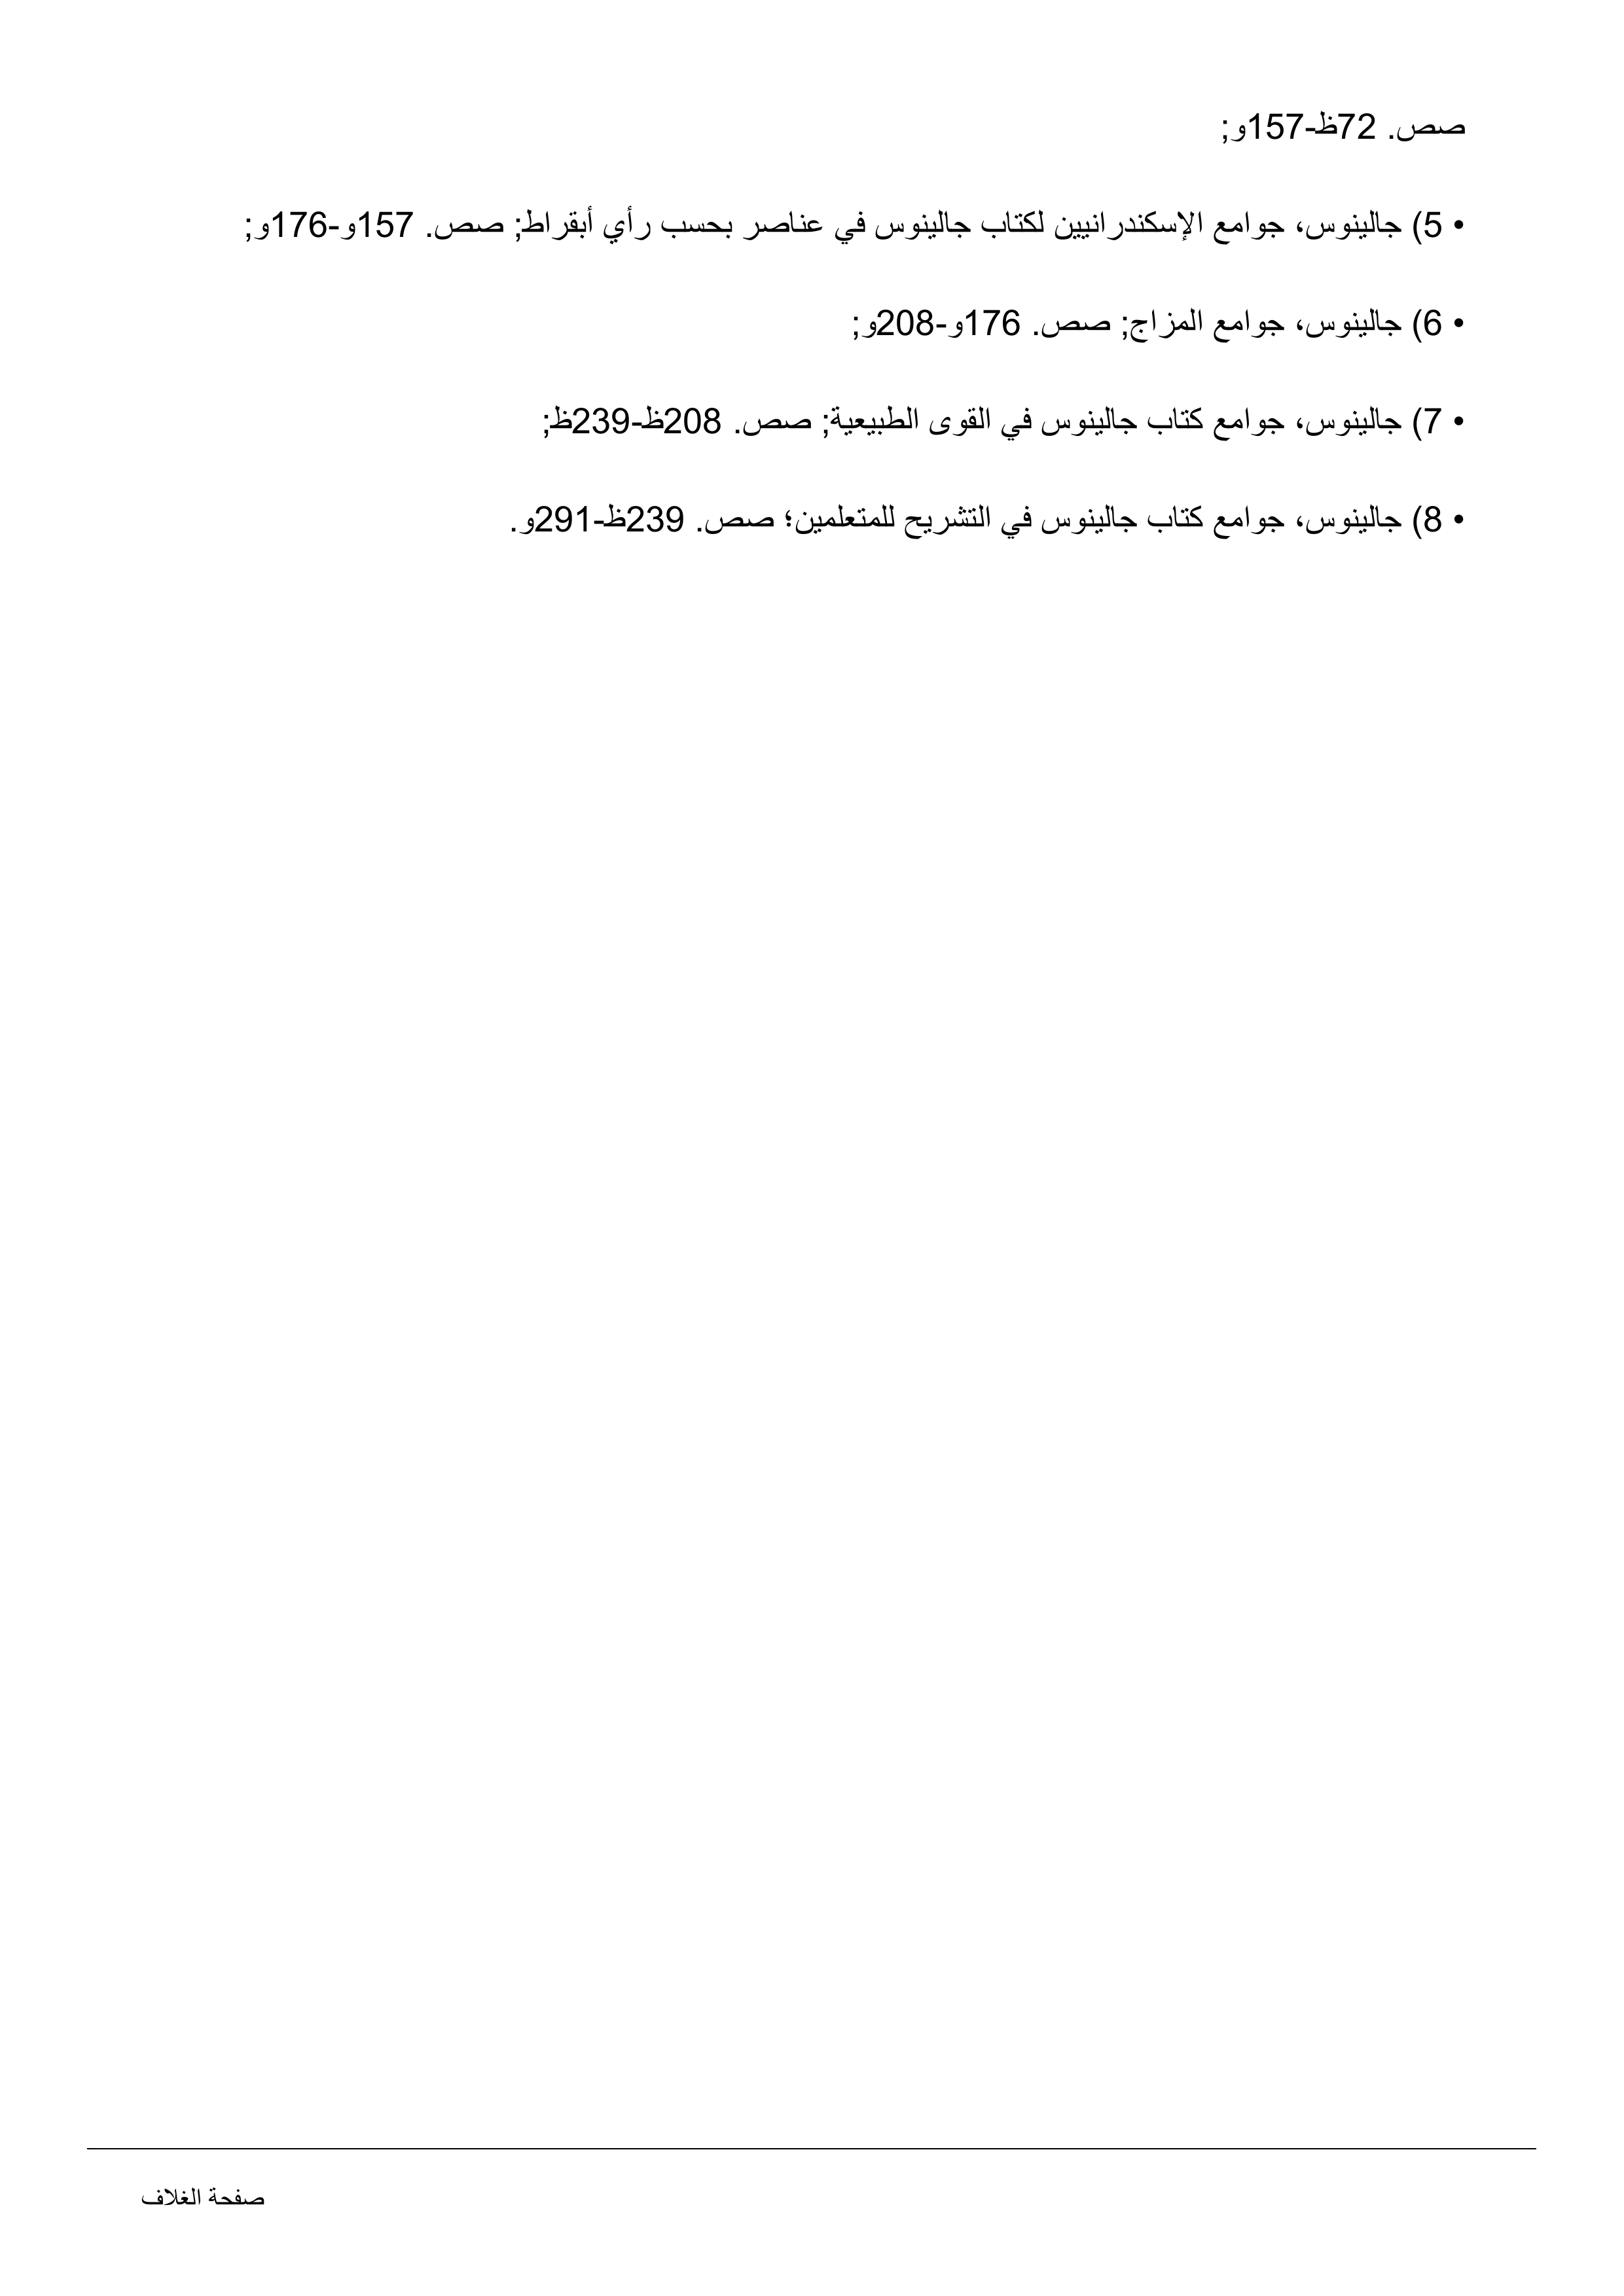 صص. 72ظ-157و;
• 5) جالينوس، جوامع الإسكندرانيين لكتاب جالينوس في عناصر بحسب رأي أبقراط; صص. 157و-176و;
• 6) جالينوس، جوامع المزاج; صص. 176و-208و;
• 7) جالينوس، جوامع كتاب جالينوس في القوى الطبيعية; صص. 208ظ-239ظ;
• 8) جالينوس، جوامع كتاب جالينوس في التشريح للمتعلمين؛ صص. 239ظ-291و.
صفحة الغلاف